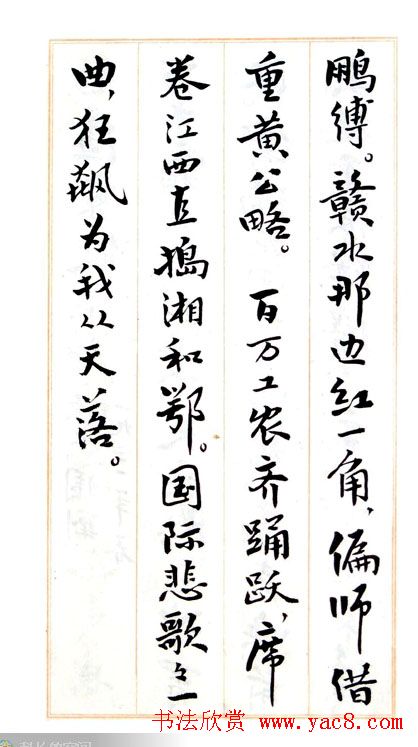 鹏缚。赣水那边红一角，偏师借
重黄公略。 百万工农齐踊跃，席
卷江西直捣湘和鄂。国际悲歌歌一
曲，狂飙为我从天落。
书法欣赏 www.yac8.com